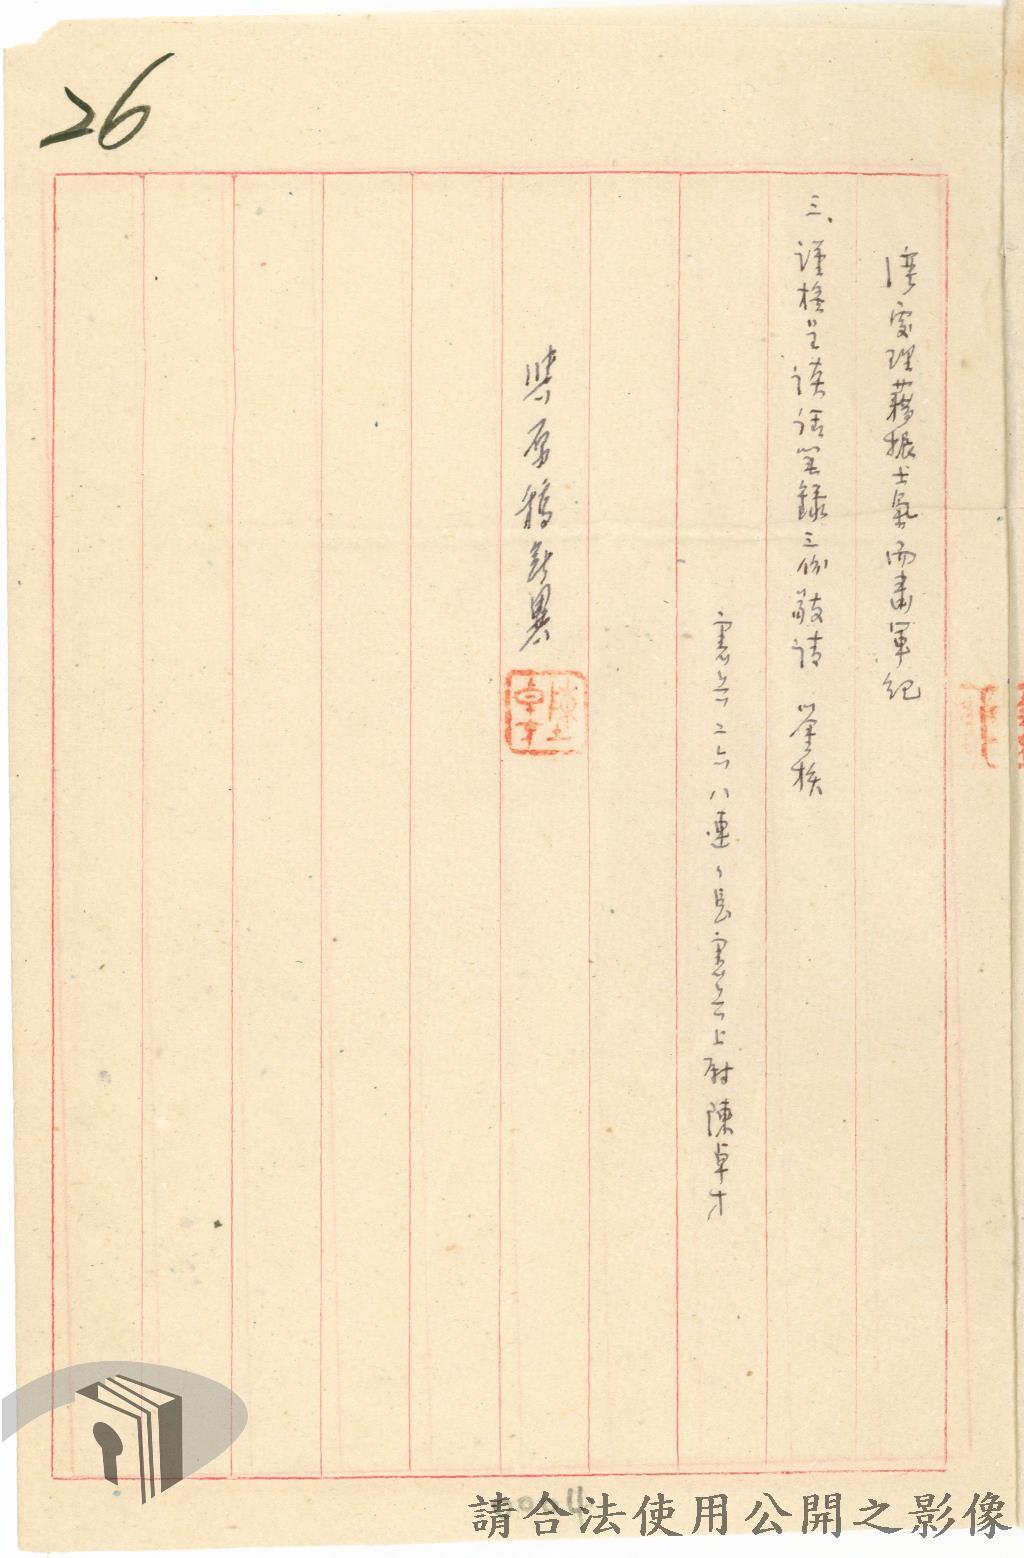 26
處理藉振士氣而肅軍紀
三、謹檢呈談話筆錄三份敬請 鑒核
憲兵二六八連々長憲兵上尉陳卓才
與原稿無異
陳卓才
請合法使用公開之影像